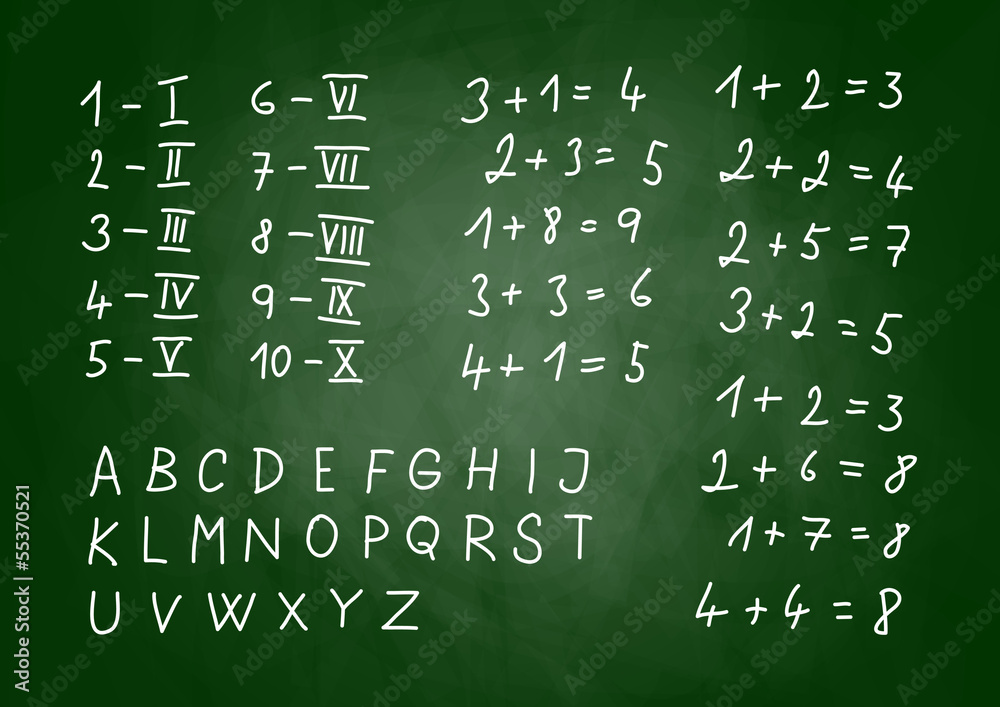 1 - I
2 - II
3 - III
4 - IV
5 - V
6 - VI
7 - VII
8 - VIII
9 - IX
10 - X
3 + 1 = 4
2 + 3 = 5
1 + 8 = 9
3 + 3 = 6
4 + 1 = 5
1 + 2 = 3
2 + 2 = 4
2 + 5 = 7
3 + 2 = 5
1 + 2 = 3
2 + 6 = 8
1 + 7 = 8
4 + 4 = 8
A B C D E F G H I J
K L M N O P Q R S T
U V W X Y Z
Adobe Stock | 55370521